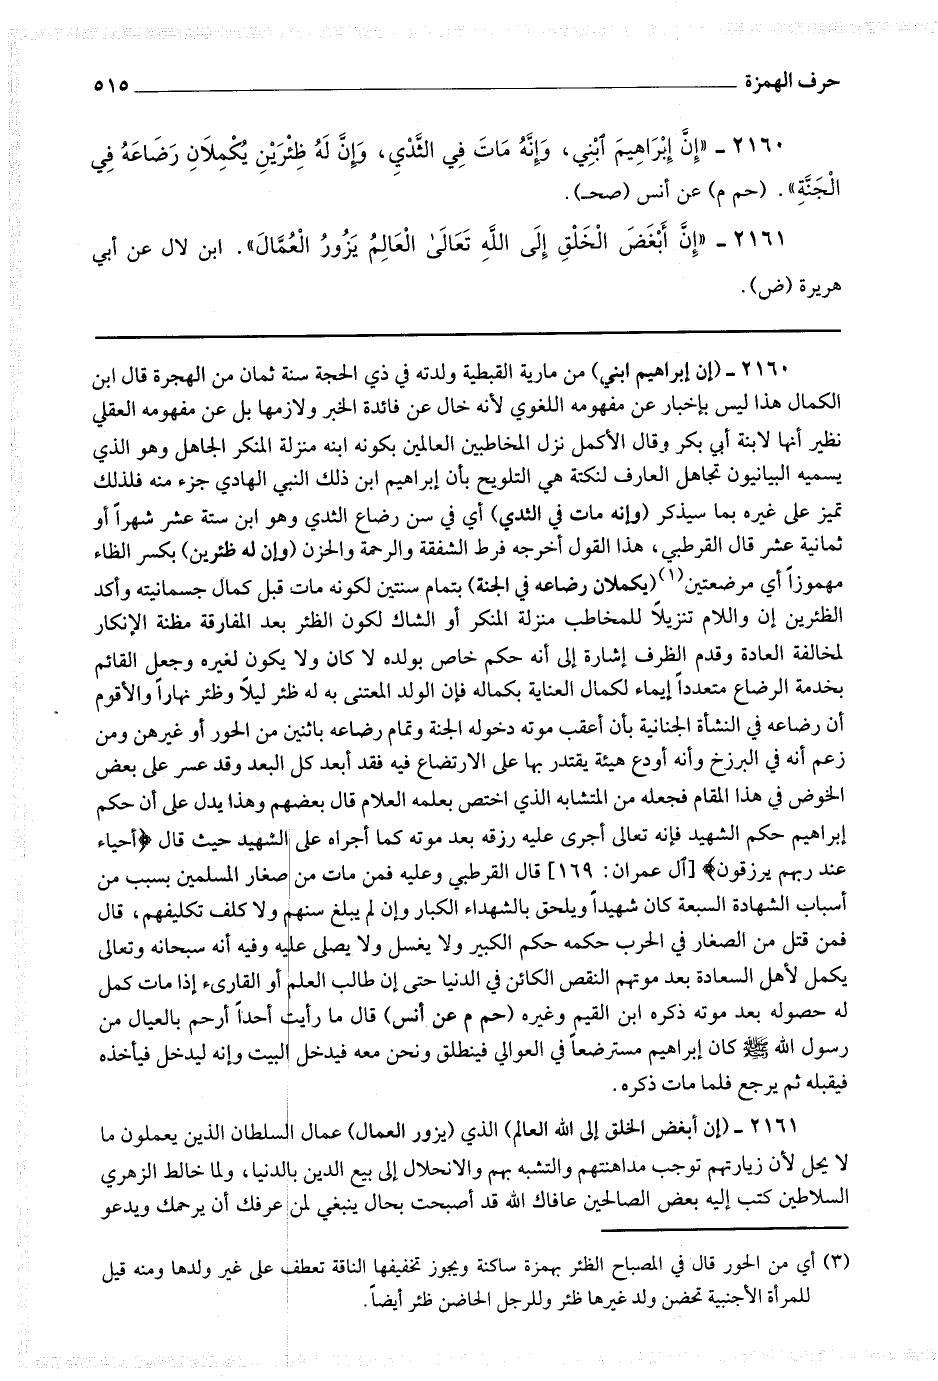 حرف الهمزة ٥١٥
٢١٦٠ ـ «إِنَّ إِبْرَاهِيمَ ٱبْنِي، وَإِنَّهُ مَاتَ فِي الثَّدْيِ، وَإِنَّ لَهُ ظِئْرَيْنِ يُكْمِلَانِ رَضَاعَهُ فِي
الْجَنَّةِ». (حم م) عن أنس (صحـ).
٢١٦١ ـ «إِنَّ أَبْغَضَ الْخَلْقِ إِلَى اللَّهِ تَعَالَىٰ الْعَالِمُ يَزُورُ الْعُمَّالَ». ابن لال عن أبي
هريرة (ض).
٢١٦٠ ـ (إن إبراهيم ابني) من مارية القبطية ولدته في ذي الحجة سنة ثمان من الهجرة قال ابن
الكمال هذا ليس بإخبار عن مفهومه اللغوي لأنه خال عن فائدة الخبر ولازمها بل عن مفهومه العقلي
نظير أنها لابنة أبي بكر وقال الأكمل نزل المخاطبين العالمين بكونه ابنه منزلة المنكر الجاهل وهو الذي
يسميه البيانيون تجاهل العارف لنكتة هي التلويح بأن إبراهيم ابن ذلك النبي الهادي جزء منه فلذلك
تميز على غيره بما سيذكر (وإنه مات في الثدي) أي في سن رضاع الثدي وهو ابن ستة عشر شهراً أو
ثمانية عشر قال القرطبي، هذا القول أخرجه فرط الشفقة والرحمة والحزن (وإن له ظئرين) بكسر الظاء
مهموزاً أي مرضعتين(١) (يكملان رضاعه في الجنة) بتمام سنتين لكونه مات قبل كمال جسمانيته وأكد
الظئرين إن واللام تنزيلاً للمخاطب منزلة المنكر أو الشاك لكون الظئر بعد المفارقة مظنة الإنكار
لمخالفة العادة وقدم الظرف إشارة إلى أنه حكم خاص بولده لا كان ولا يكون لغيره وجعل القائم
بخدمة الرضاع متعدداً إيماء لكمال العناية بكماله فإن الولد المعتنى به له ظئر ليلاً وظئر نهاراً والأقوم
أن رضاعه في النشأة الجنانية بأن أعقب موته دخوله الجنة وتمام رضاعه باثنين من الحور أو غيرهن ومن
زعم أنه في البرزخ وأنه أودع هيئة يقتدر بها على الارتضاع فيه فقد أبعد كل البعد وقد عسر على بعض
الخوض في هذا المقام فجعله من المتشابه الذي اختص بعلمه العلام قال بعضهم وهذا يدل على أن حكم
إبراهيم حكم الشهيد فإنه تعالى أجرى عليه رزقه بعد موته كما أجراه على الشهيد حيث قال ﴿أحياء
عند ربهم يرزقون﴾ [آل عمران: ١٦٩] قال القرطبي وعليه فمن مات من صغار المسلمين بسبب من
أسباب الشهادة السبعة كان شهيداً ويلحق بالشهداء الكبار وإن لم يبلغ سنهم ولا كلف تكليفهم، قال
فمن قتل من الصغار في الحرب حكمه حكم الكبير ولا يغسل ولا يصلى عليه وفيه أنه سبحانه وتعالى
يكمل لأهل السعادة بعد موتهم النقص الكائن في الدنيا حتى إن طالب العلم أو القارىء إذا مات كمل
له حصوله بعد موته ذكره ابن القيم وغيره (حم م عن أنس) قال ما رأيت أحداً أرحم بالعيال من
رسول الله ﷺ كان إبراهيم مسترضعاً في العوالي فينطلق ونحن معه فيدخل البيت وإنه ليدخل فيأخذه
فيقبله ثم يرجع فلما مات ذكره.
٢١٦١ ـ (إن أبغض الخلق إلى الله العالم) الذي (يزور العمال) عمال السلطان الذين يعملون ما
لا يحل لأن زيارتهم توجب مداهنتهم والتشبه بهم والانحلال إلى بيع الدين بالدنيا، ولما خالط الزهري
السلاطين كتب إليه بعض الصالحين عافاك الله قد أصبحت بحال ينبغي لمن عرفك أن يرحمك ويدعو
(٣) أي من الحور قال في المصباح الظئر بهمزة ساكنة ويجوز تخفيفها الناقة تعطف على غير ولدها ومنه قيل
للمرأة الأجنبية تحضن ولد غيرها ظئر وللرجل الحاضن ظئر أيضاً.